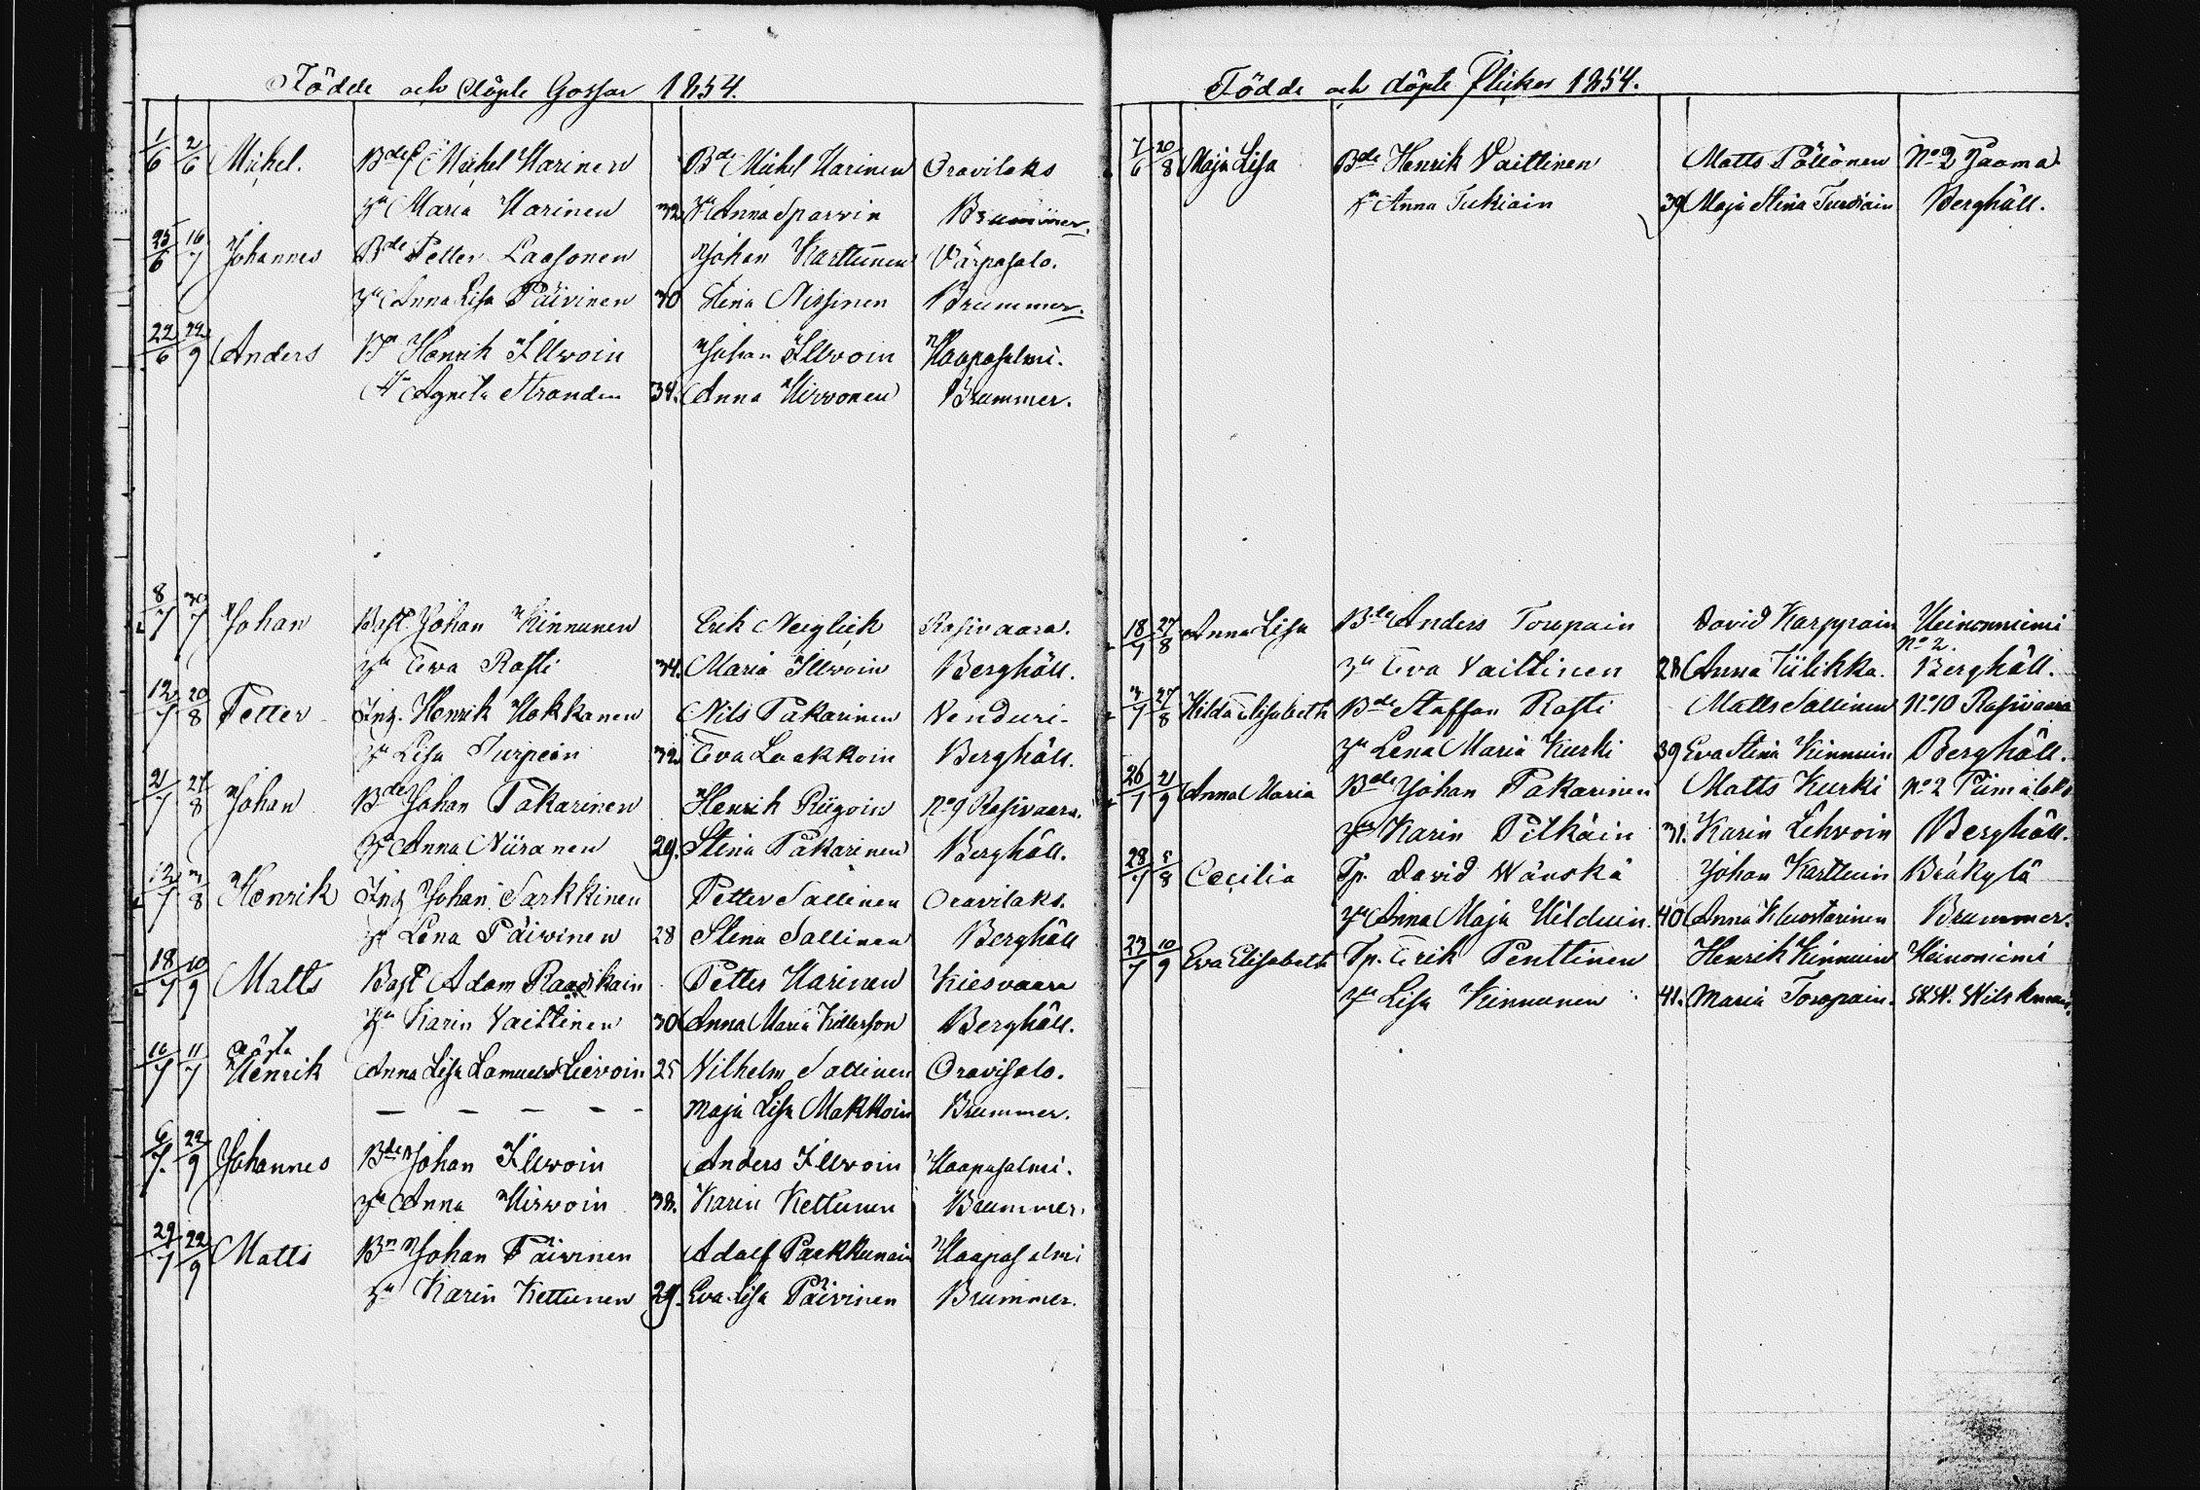 Födde och döpte Gossar 1854.
1/6 2/6 Michel. Bde Michel Harinen Bde Michel Harinen Oravilaks
hu Maria Harinen 32 hu Anna Sparvin Brummer.
25/6 16/7 Johannes Bde Petter Laasonen Johan Karttunen Värpasalo.
hu Anna Lisa Päivinen 30 Stina Nissinen Brummer.
22/6 24/9 Anders Bn Henrik Illwoin Johan Illwoin Haapasalmi.
hu Agneta Stranden 34. Anna Hirvonen Brummer.
8/7 30/7 Johan Bost Johan Kinnunen Erik Neiglick Rasivaara.
hu Eva Rosti 34. Maria Illwoin Berghäll.
12/7 20/8 Petter Inh. Henrik Hokkanen Nils Pakarinen Venduri
hu Lisa Turpein 32 Eva Laakkoin Berghäll.
21/7 27/8 Johan Bde Johan Pakarinen Henrik Piigoin No 9 Rasivaara.
hu Anna Niiranen 29. Stina Pakarinen Berghäll.
12/7 3/8 Henrik Inh Johan Sarkkinen Petter Sallinen Oravilaks.
hu Lena Päivinen 28 Stina Sallinen Berghäll
18/7 10/9 Matts Bost Adam Raasikain Petter Harinen Kiesvaara
hu Karin Vaittinen 30 Anna Maria Killerson Berghäll.
oäkta
10/7 11/7 Henrik Anna Lisa Samuelsd Lievoin 25 Vilhelm Sallinen Oravisalo.
— — — — — Maja Lisa Makkoin Brummer.
6/7. 22/9 Johannes Bde Johan Illwoin Anders Illwoin Haapasalmi.
hu Anna Hirvoin 38. Karin Kettunen Brummer.
29/7 22/9 Matts Bn Johan Päivinen Adolf Paakkunain Haapasalmi
hu Karin Kettunen 29. Eva Lisa Päivinen Brummer.
Födde och döpte Flickor 1854.
7/6 20/8 Maja Lisa Bde Henrik Vaittinen Matts Pöllönen No 2 Jaama
hu Anna Tukiain 39 Maja Stina Turdiain Berghäll.
18/7 27/8 Anna Lisa Bde Anders Toropain David Karppain Heinoniemi
No 2.
hu Eva Vaittinen 28 Anna Tiilikka. Berghäll.
3/7 27/8 Hilda Elisabeth Bde Staffan Rosti Matts Sallinen No 10 Rasivaara
hu Lena Maria Kurki 39 Eva Stina Kinnuin Berghäll.
26/7 21/9 Anna Maria Bde Johan Pakarinen Matts Kurki No 2 Piimälaks
hu Karin Pitkäin 31. Karin Lehvoin Berghäll.
28/7 5/8 Cecilia Tp. David Wänskä Johan Karttuin Bräkylä
hu Anna Maja Hilduin. 40 Anna Kluostarinen Brummer.
23/7 10/9 Eva Elisabeth Tp. Erik Penttinen Henrik Kinnuin Heinoniemi
hu Lisa Kinnunen 41. Maria Toropain. Wilskman.